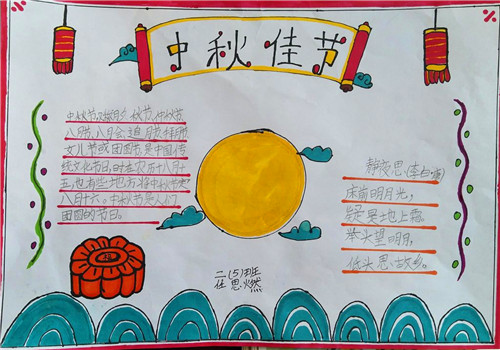 中秋佳节
中秋节又称月夕、秋节、仲秋节、
八月节、八月会、追月节、拜月节、
女儿节或团圆节,是中国传
统文化节日,时在农历八月十
五,也有些地方将中秋节定在
八月十六。中秋节是人们
团圆的节日。
静夜思(李白)
床前明月光,
疑是地上霜。
举头望明月,
低头思故乡。
二(5)班
任思燃